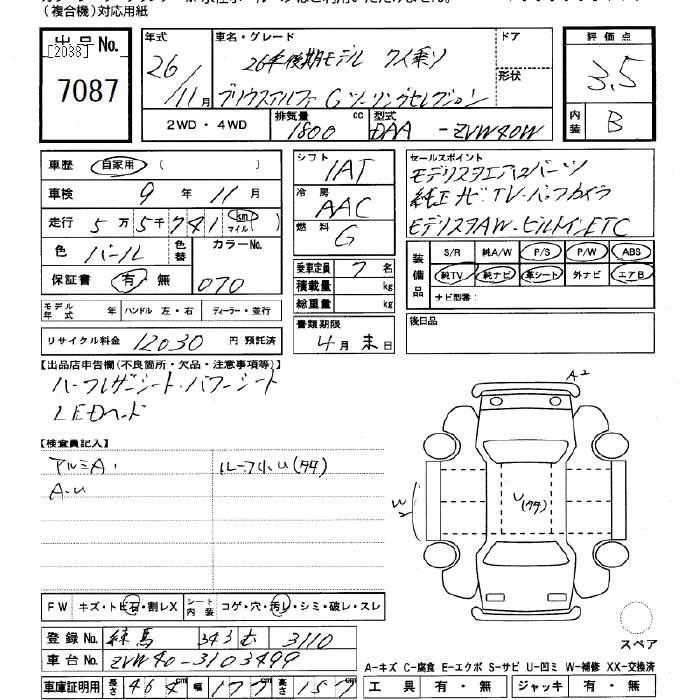 (複合機)対応用紙
出品No.
[2038]
7087
年式
26/11月
車名・グレード
26年後期モデル 7人乗り
プリウスアルファ Gツーリングセレクション
ドア
形状
評価点
3.5
内装
B
2WD・4WD
排気量 cc
1800
型式
DAA - ZVW40W
車歴 自家用 ( )
車検 9年 11月
走行 5万5千741 km マイル ( )
色 パール
色替
カラーNo.
070
保証書 有・無
モデル年式 年 ハンドル 左・右 ディーラー・並行
リサイクル料金 12030 円 預託済
シフト
IAT
冷房
AAC
燃料
G
乗車定員 7 名
積載量 kg
総重量 kg
書類期限
4月末日
セールスポイント
モデリスタエアロパーツ
純正ナビ・TV・バックカメラ
モデリスタAW・ビルトインETC
装備品
S/R 純A/W P/S P/W ABS
純TV 純ナビ 革シート 外ナビ エアB
ナビ型番:
後日品
【出品店申告欄(不良箇所・欠品・注意事項等)】
ハーフレザーシート・パワーシート
LEDヘッド
【検査員記入】
アルミA・
ルーフ小U(タタ)
A・U
A2
W2
U(タタ)
FW キズ・トビ石・割レX
シート内装 コゲ・穴・汚レ・シミ・破レ・スレ
登録No. 練馬 343 む 3110
車台No. ZVW40-3103499
車庫証明用 長さ 464 cm 幅 177 cm 高さ 157 cm
スペア
A-キズ C-腐食 E-エクボ S-サビ U-凹ミ W-補修 XX-交換済
工具 有・無 ジャッキ 有・無